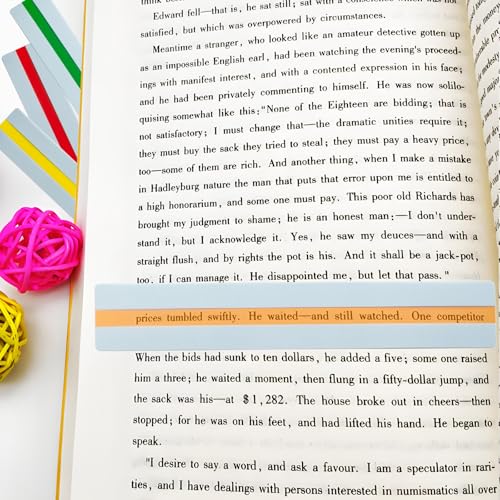 Edward fell—that is, he sat still; sat with a conscience which was not
satisfied, but which was overpowered by circumstances.
Meantime a stranger, who looked like an amateur detective gotten up
as an impossible English earl, had been watching the evening's proceed-
ings with manifest interest, and with a contented expression in his face;
and he had been privately commenting to himself. He was now solilo-
quising somewhat like this: "None of the Eighteen are bidding; that is
not satisfactory; I must change that—the dramatic unities require it;
they must buy the sack they tried to steal; they must pay a heavy price,
too—some of them are rich. And another thing, when I make a mistake
in Hadleyburg nature the man that puts that error upon me is entitled to
a high honorarium, and some one must pay. This poor old Richards has
brought my judgment to shame; he is an honest man:—I don't under-
stand it, but I acknowledge it. Yes, he saw my deuces—and with a
straight flush, and by rights the pot is his. And it shall be a jack-pot,
too, if I can manage it. He disappointed me, but let that pass."
prices tumbled swiftly. He waited—and still watched. One competitor
When the bids had sunk to ten dollars, he added a five; some one raised
him a three; he waited a moment, then flung in a fifty-dollar jump, and
the sack was his—at $1,282. The house broke out in cheers—then
stopped; for he was on his feet, and had lifted his hand. He began to
speak.
"I desire to say a word, and ask a favour. I am a speculator in rari-
ties, and I have dealings with persons interested in numismatics all over